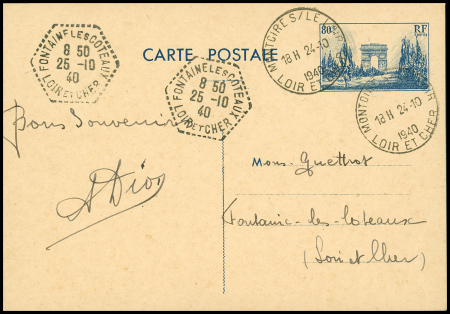 FONTAINE LES COTEAUX
8 50
25 - 10
40
LOIR ET CHER
CARTE POSTALE
FONTAINE LES COTEAUX
8 50
25 - 10
40
LOIR ET CHER
MONTOIRE S/LE LOIR
18 H 24-10
1940
LOIR ET CHER
80c RF
MONTOIRE
18 H 24-10
1940
LOIR ET CHER
Bons Souvenirs
Mons. Quettrot
Fontaine-les-Coteaux
(Loir et Cher)